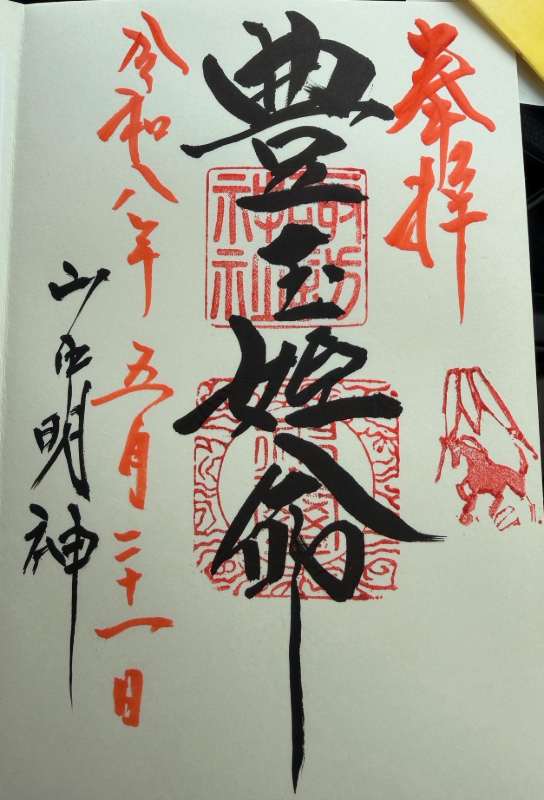 奉拝
豊玉姫命
令和八年 五月二十一日
山 明神
神社